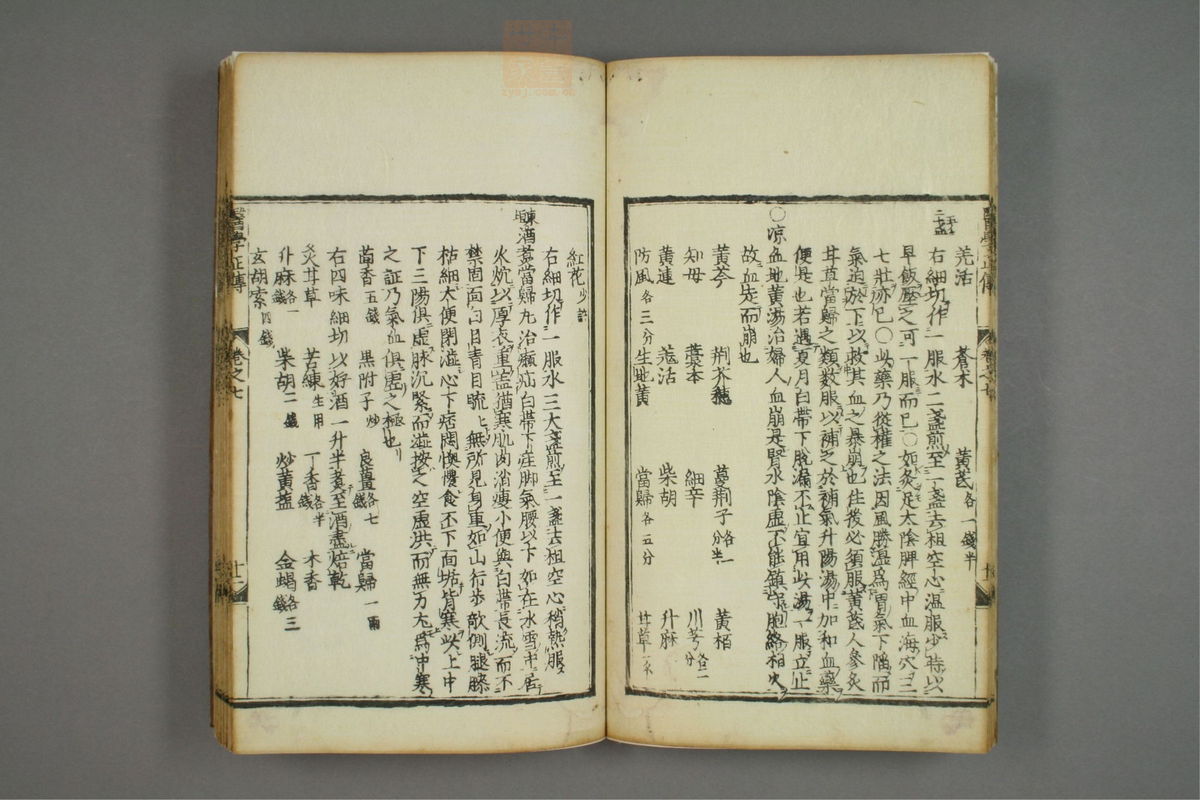 羌活 蒼朮 黃芪各一錢半
右細切作一服水二盞煎至一盞去柤空心温服少時以
早飯壓之可一服而已〇如灸足太陰脾經中血海穴二三
七壯亦已〇此藥乃從權之法因風勝濕爲胃氣下陷而
氣迫於下以救其血之暴崩也住後必須服黃芪人參炙
甘草當歸之類數服以補之於補氣升陽湯中加和血藥
便是也若遇夏月白帶下脫漏不止宜用此湯一服立止
〇凉血地黃湯治婦人血崩是腎水陰虛不能鎮守胞絡相火
故血走而崩也
黃芩 荆芥穗 蔓荆子各一分半 黃栢
知母 藁本 細辛 川芎各二分
黃連 羗活 柴胡 升麻
防風各三分 生地黃 當歸各五分 甘草一錢
醫學正傳 卷之七
紅花少許
右細切作一服水三大盞煎至一盞去柤空心稍熱服
東垣酒煮當歸丸治癩疝白帶下疰脚氣腰以下如在水雪中居
火炕以厚衣重盖猶寒肌肉消瘦小便與白帶長流而不
禁固面白目青目䀮䀮無所見身重如山行步欹側腿膝
枯細大便閉澁心下痞悶懊憹食不下面垢背寒以上中
下三陽俱虛脉沉緊而澁按之空虛洪而無力尢爲中寒
之証乃氣血俱虛之極也
茴香五錢 黑附子炒 良薑各七錢 當歸一兩
右四味細切以好酒一升半煮至酒盡焙乾
炙甘草 苦練生用 丁香各半錢 木香
升麻各一錢 柴胡二錢 炒黃塩 金蝎各三錢
玄胡索四錢
醫學正傳 卷之七 十二